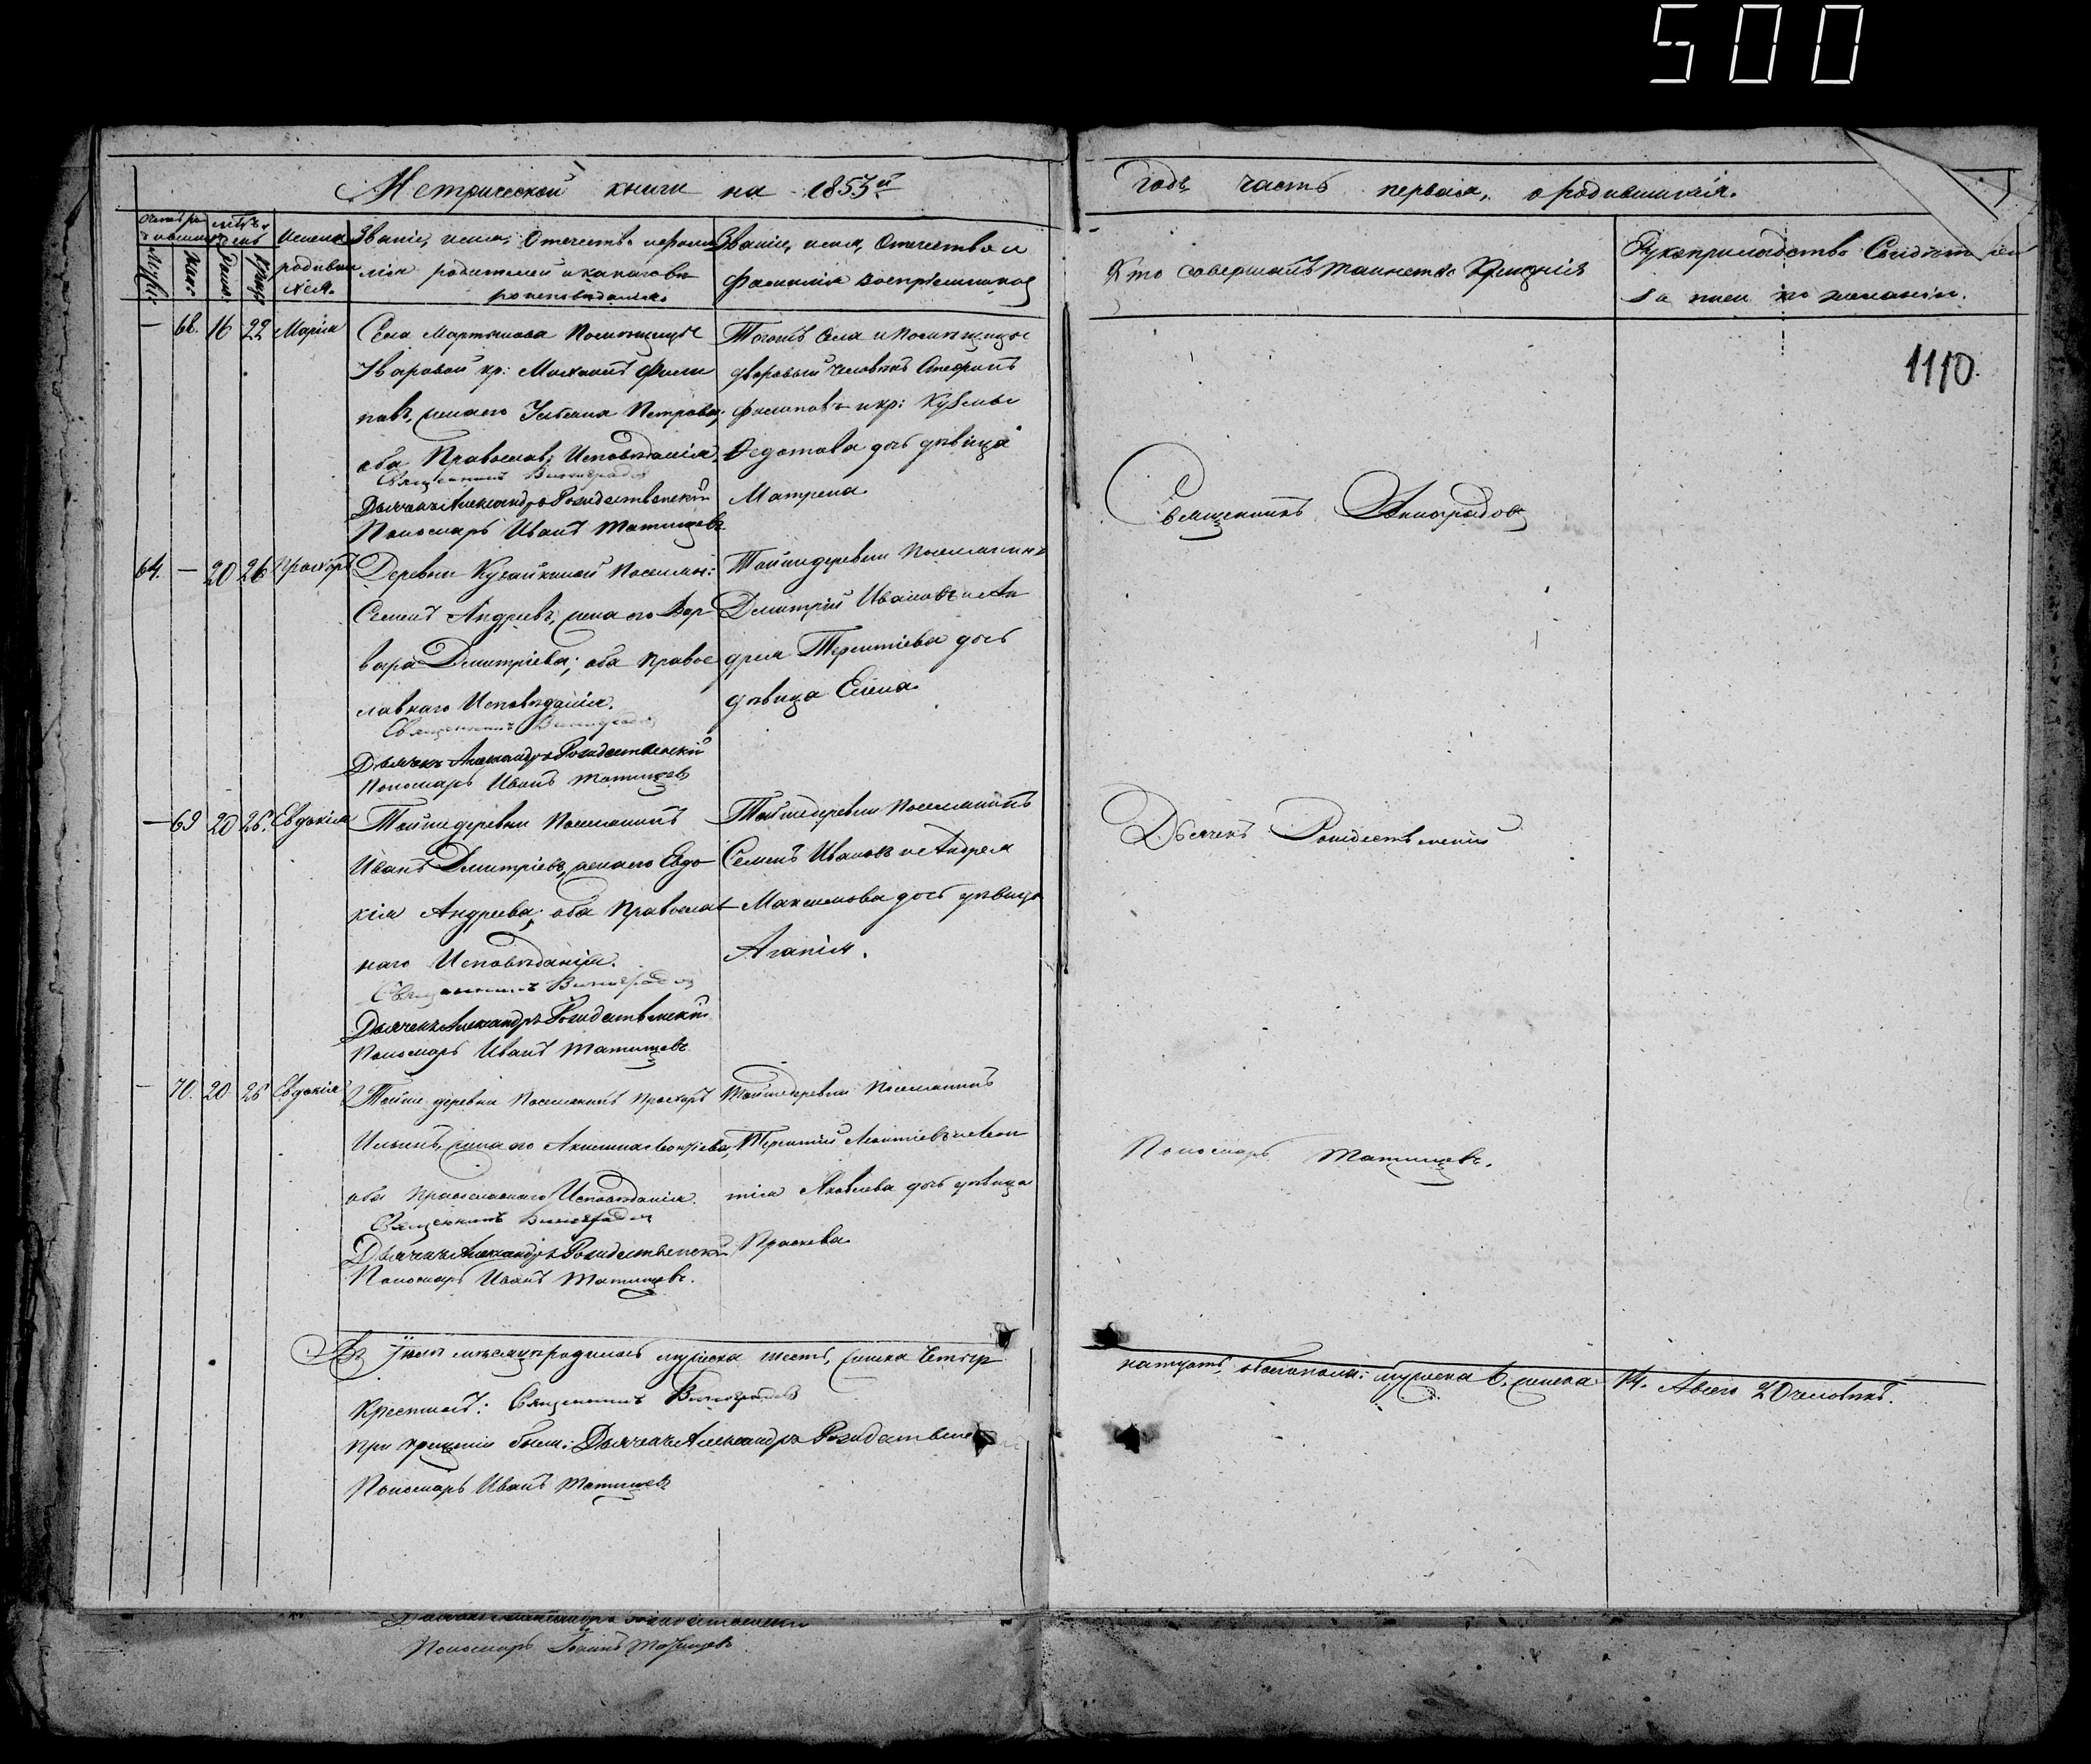 500
Метрической книги на 1853й
годъ часть первая, о родившихся.
Звание, имя, Отечество и фами
лія родителей и какого вѣ
роисповѣданія
Званіе, имя, Отечество и
фамилія воспріемниковъ
Кто совершалъ таинство Крещенія
Рукоприкладство Свидѣтелей
записи по желанію.
1110.
— 68. 16 22 Марія
Села Мартынова Помѣщицы
Уваровой кр: Михаилъ Фили
повъ, жена его Ульяна Петрова;
оба Православ: Исповѣданія.
Священникъ Виноградов
Дьячекъ Александръ Рождественский
Пономарь Иванъ Татищевъ
Тогожъ Села и Помѣщицы
дворовый человѣкъ
Филиповъ и кр: Кузьмы
Федотова дочь дѣвица
Матрена.
Священникъ Виноградов
64. — 20 26 Прохоръ
Деревни Поселян:
Семенъ Андреевъ, жена его Вар
вара Дмитріева; оба Правос
лавнаго Исповѣданія.
Священникъ Виноградов
Дьячекъ Александръ Рождественский
Пономарь Иванъ Татищевъ
Тойже деревни Поселянинъ
Дмитрій Ивановъ и Ан
дрея Терентіева дочь
дѣвица Елена.
— 69 20 26. Евдокія
Тойже деревни Поселянинъ
Иванъ Дмитріевъ, жена его Евдо
кія Андреева; оба Православ
наго Исповѣданія.
Священникъ Виноградов
Дьячекъ Александръ Рождественский
Пономарь Иванъ Татищевъ
Тойже деревни Поселянинъ
Семенъ Ивановъ и Андрея
Максимова дочь дѣвица
Агапія.
Дьячекъ Рождественский
— 70. 20 26 Евдокія
Тойже деревни Поселянинъ Прохоръ
Ильинъ, жена его Акилина Леонтіева,
оба Православнаго Исповѣданія.
Священникъ Виноградов
Дьячекъ Александръ Рождественский
Пономарь Иванъ Татищевъ.
Тойже деревни Поселянинъ
Терентій Леонтіевъ и Леон
тія Яковлева дочь дѣвица
Праскева
Пономарь Татищевъ.
Въ Іюлѣ мѣсяцѣ родилось мужеска шесть, женска четыр
надцать, обоего пола: мужеска 6. женска 14. А всего 20 человѣкъ.
Крестилъ: Священникъ Виноградовъ
при крещеніи были: Дьячекъ Александръ Рождественский
Пономарь Иванъ Татищевъ
Пономарь Іоаннъ Татищевъ